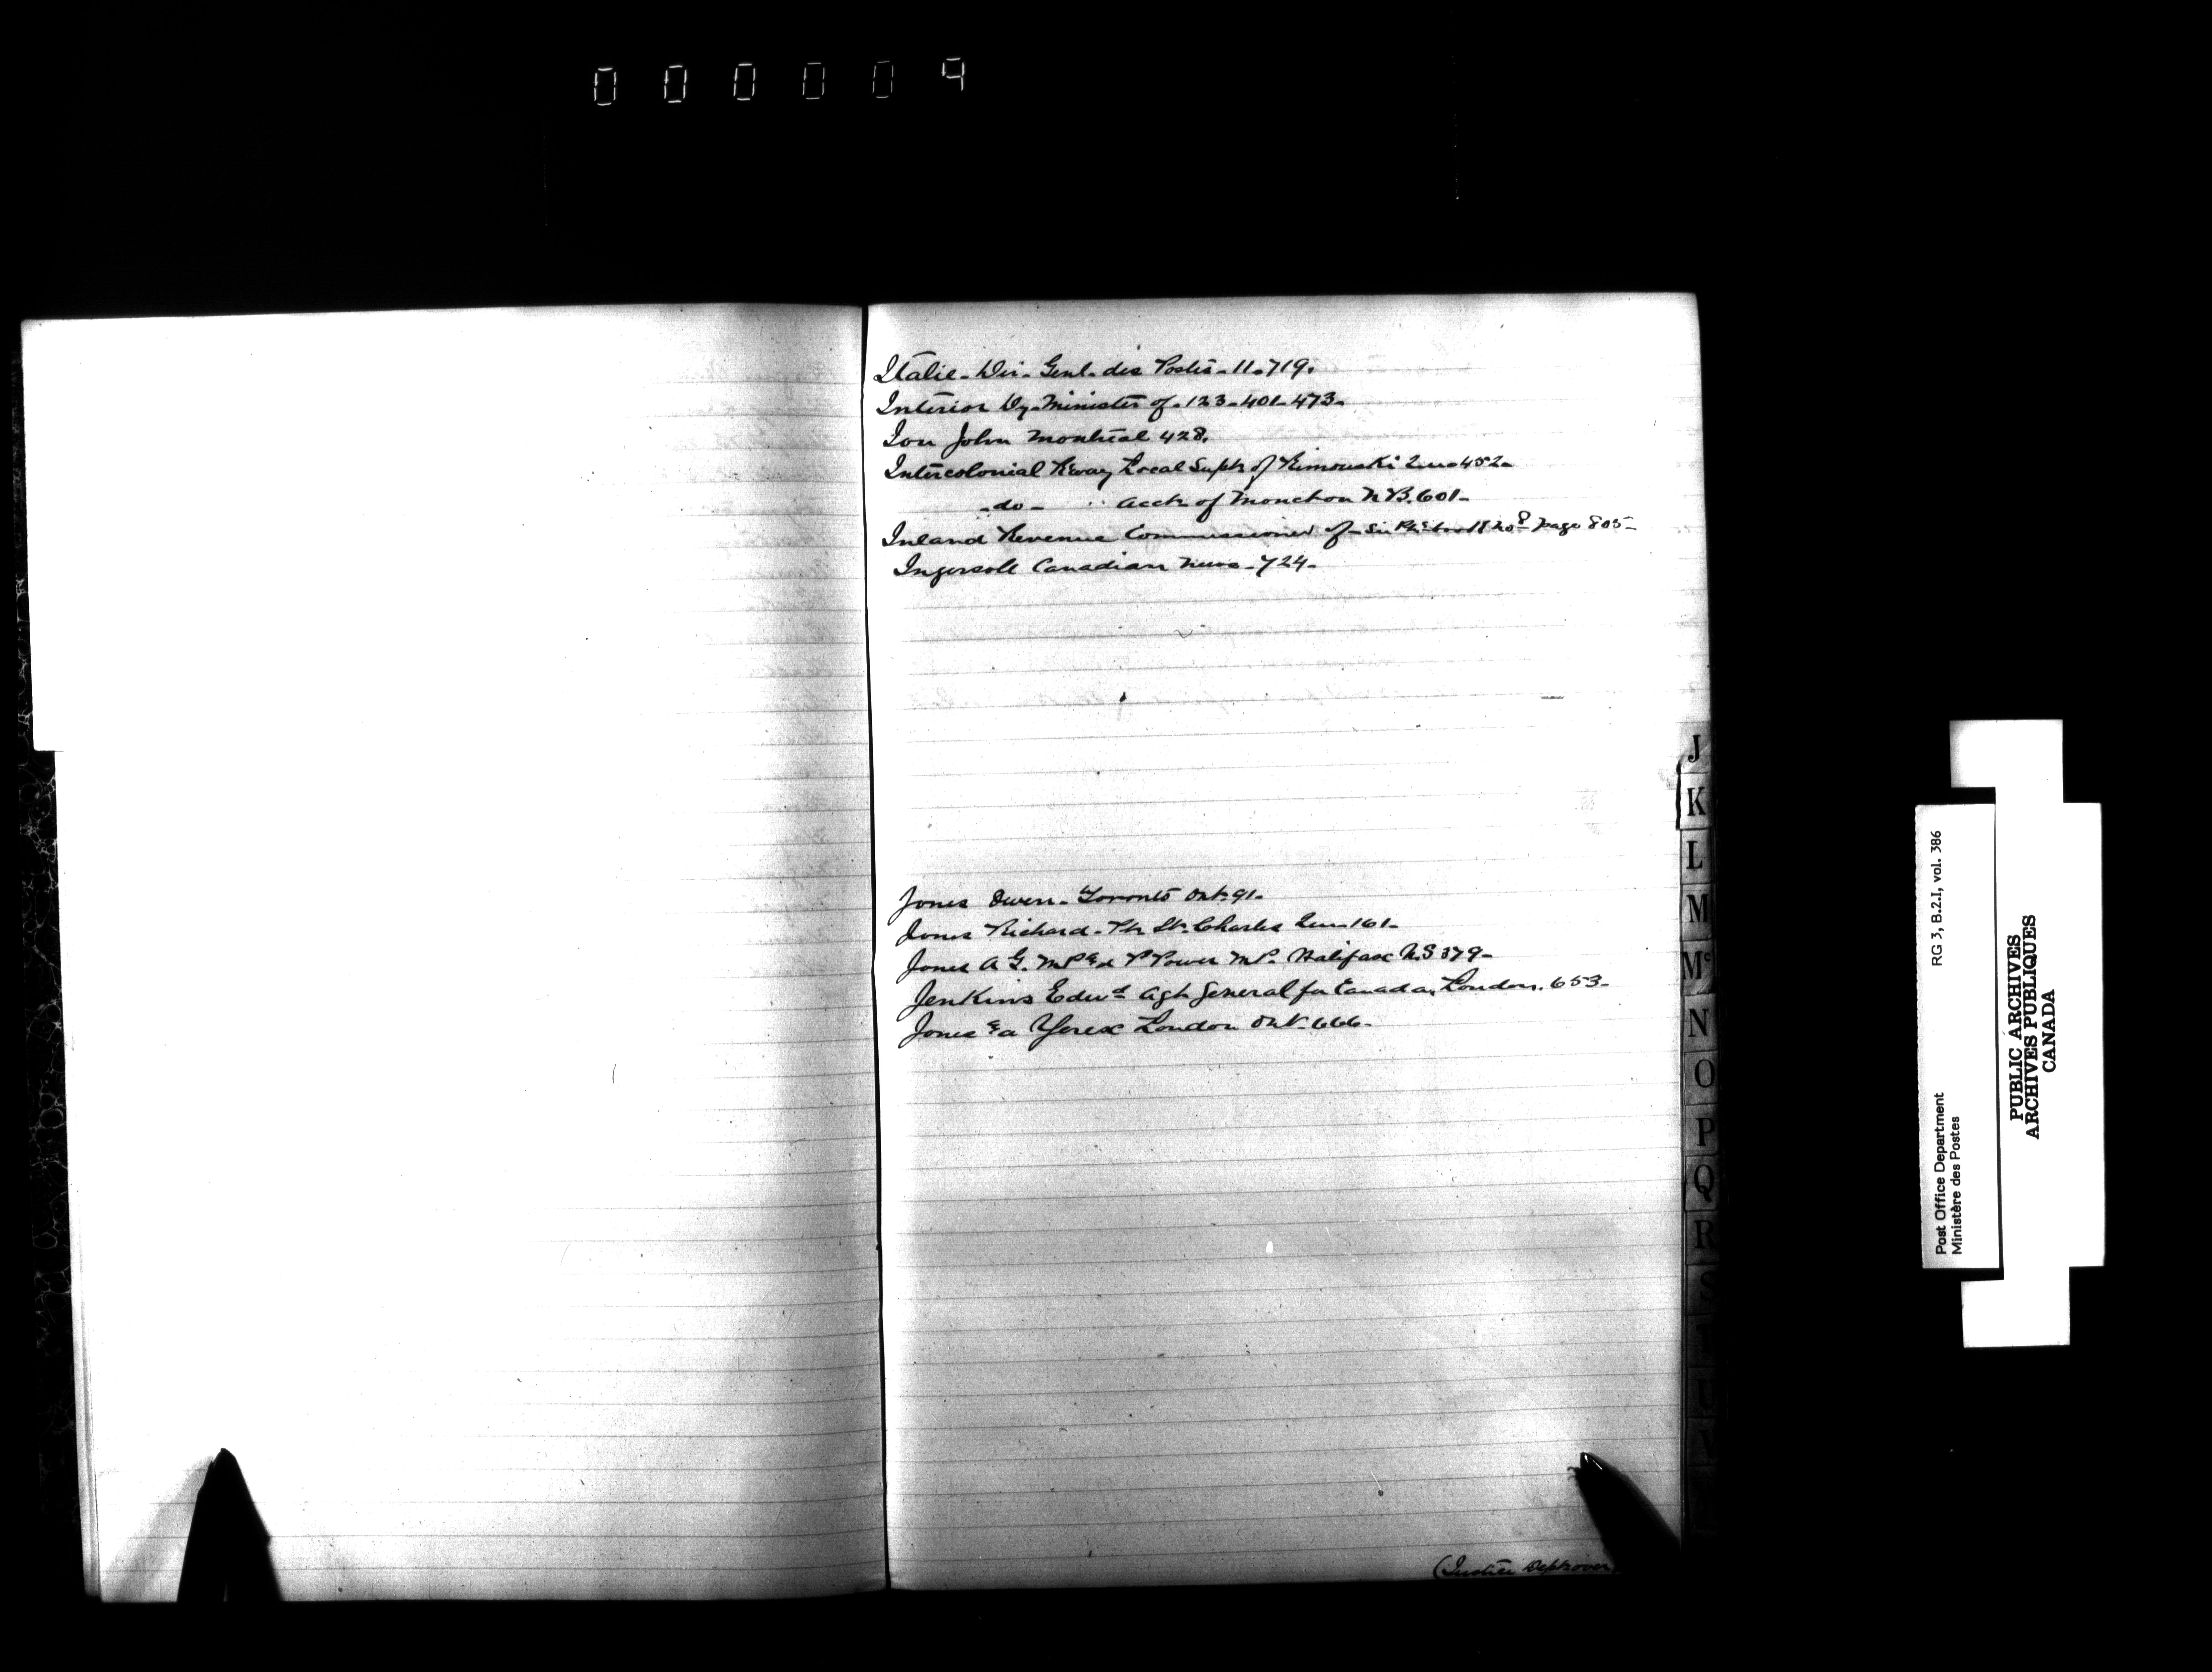 000009
Italie - Dir. Genl. des Postes - 11. 719.
Interior Dy. Minister of - 123 - 401 - 473 -
Ion John Montreal 428.
Intercolonial Rway Local Supt of Rimouski Que 452 -
- do - " Acct of Moncton N.B. 601 -
Inland Revenue Commissioner of - page 805 -
Ingersoll Canadian News - 724 -
Jones Owen - Toronto Ont. 91 -
Jones Richard - Pt St. Charles Que - 161 -
Jones A G. MP & P Power MP. Halifax N.S 379 -
Jenkins Edwd Agt General for Canada, London. 653 -
Jones & Yerex London Ont. 666 -
(Justice Dept over)
J
K
L
M
Mc
N
O
P
Q
R
S
T
U
V
RG 3, B.2.I, vol. 386
Post Office Department
Ministère des Postes
PUBLIC ARCHIVES
ARCHIVES PUBLIQUES
CANADA